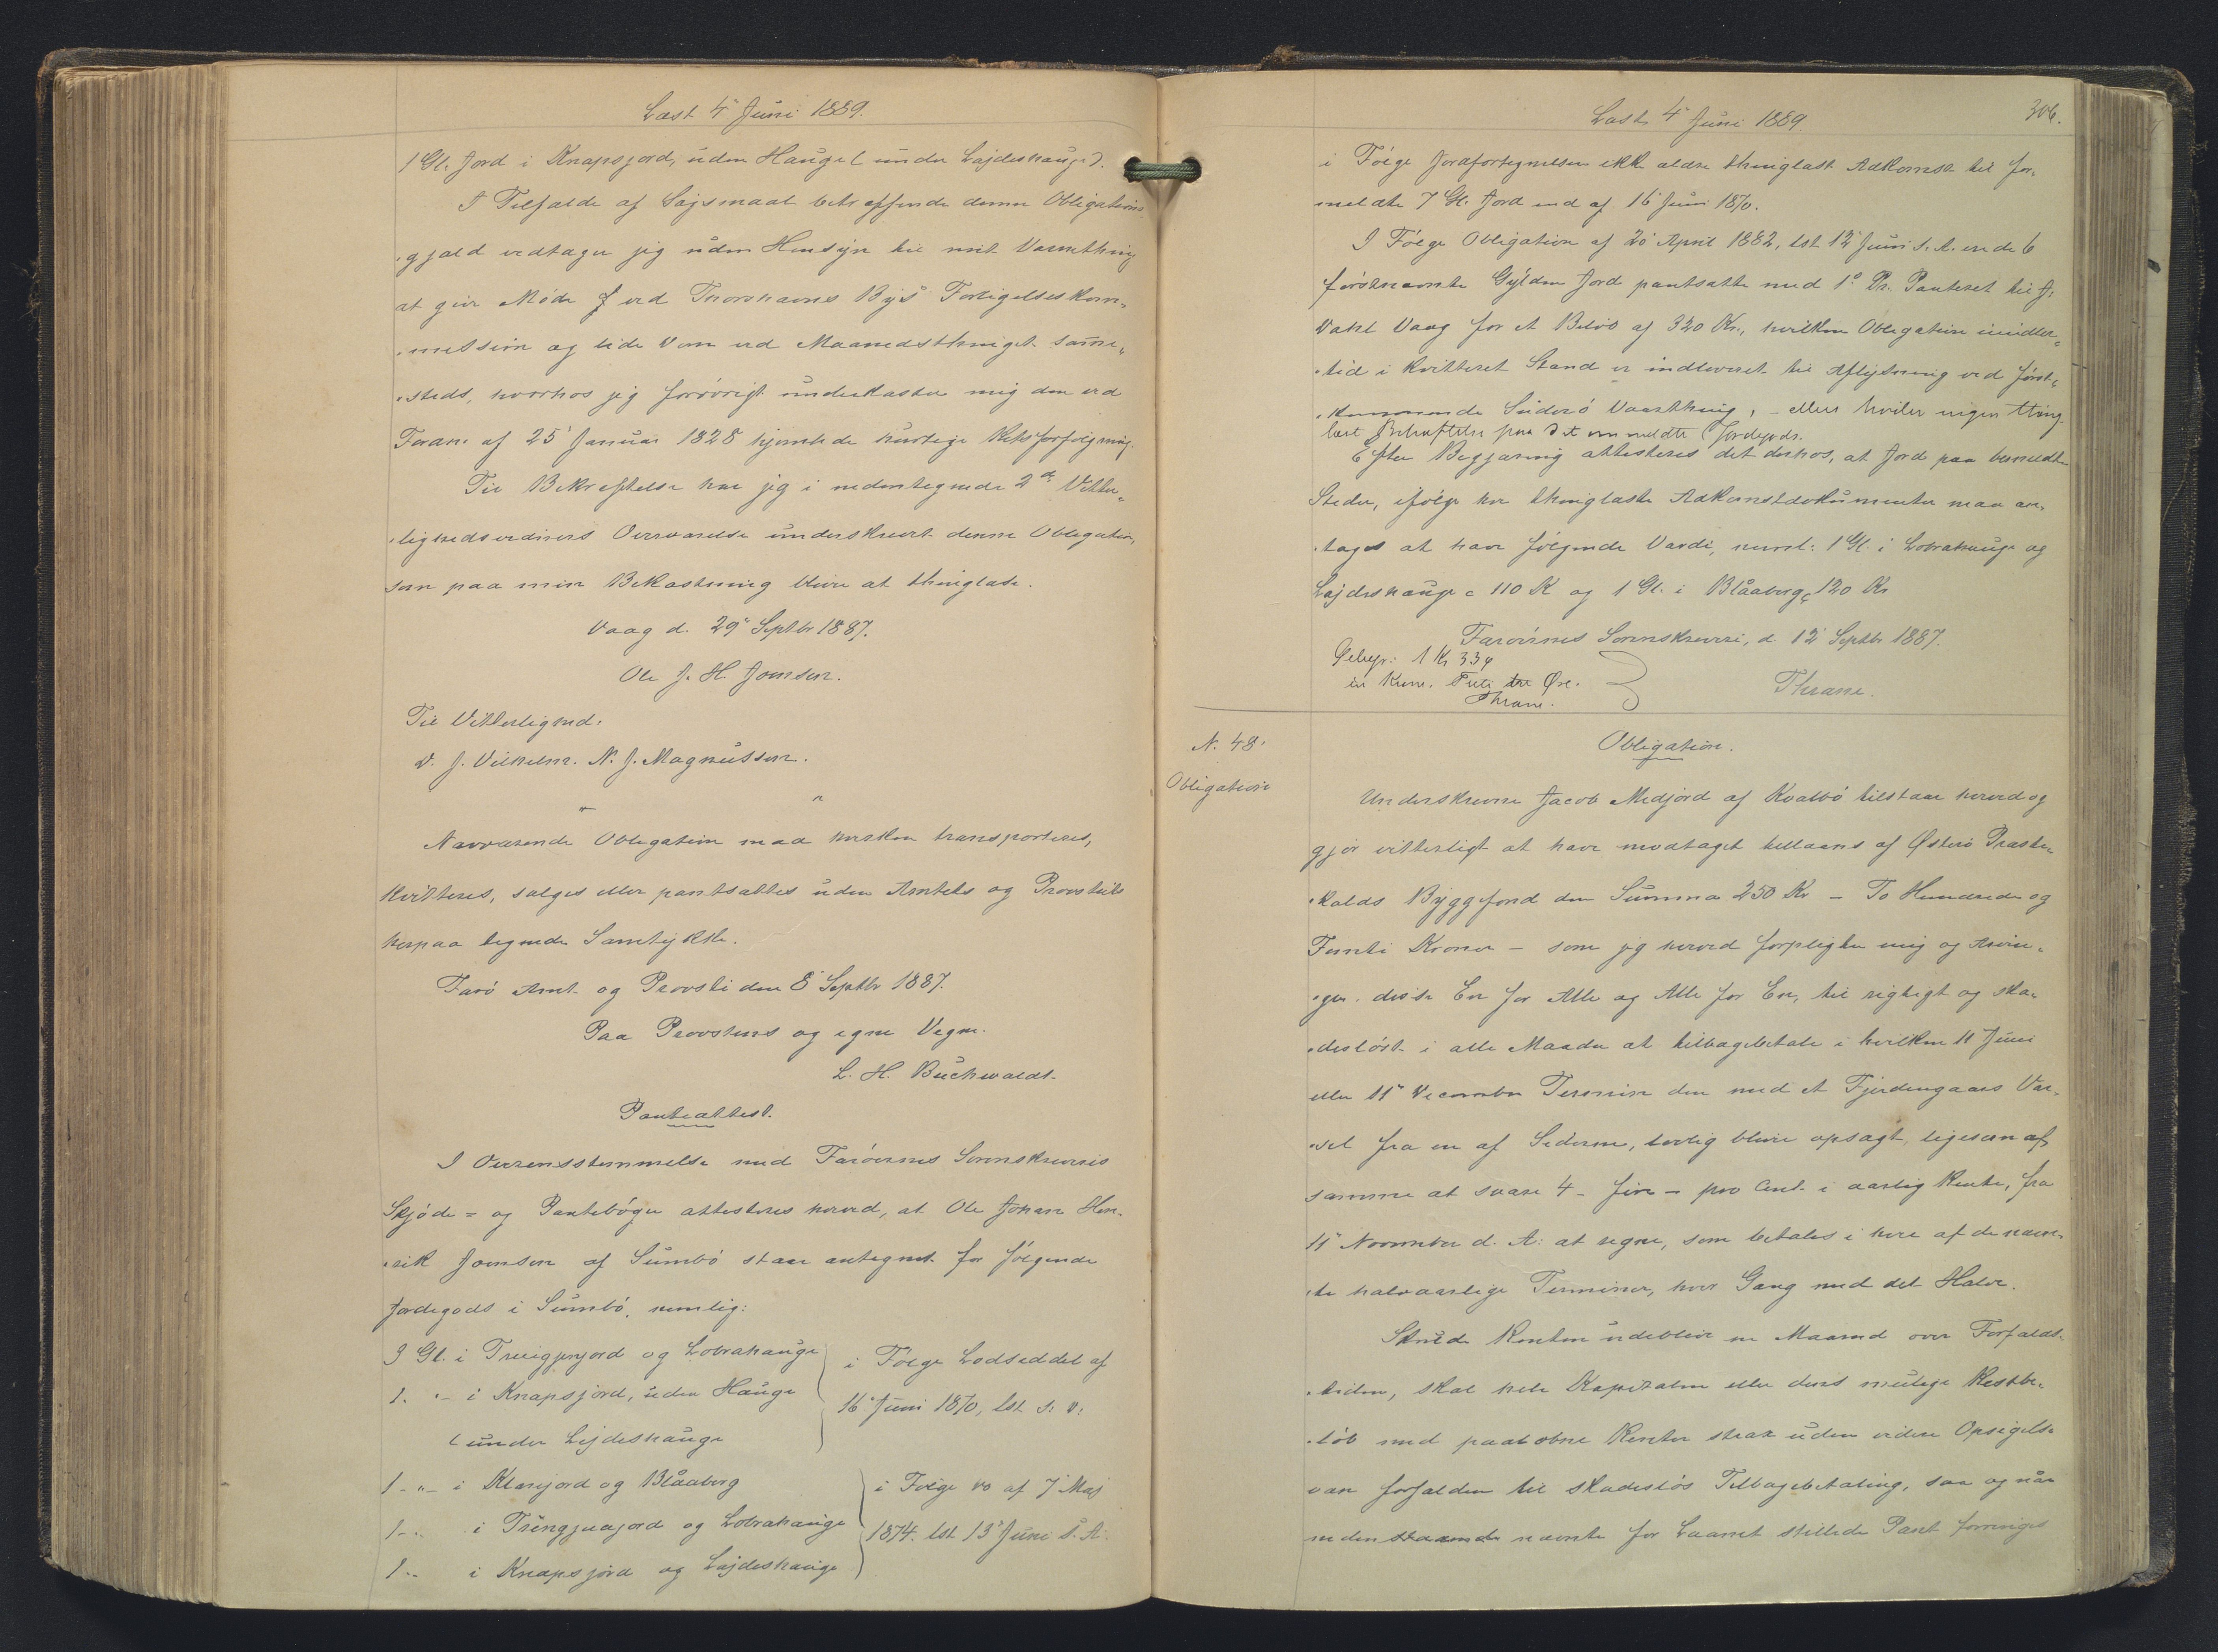 Læst 4' Juni 1889.
1 Gl. Jord i Knapsjord, uden Hauge (under Lajdeshauge).
I Tilfælde af Søgsmaal betræffende denne Obligations
gjæld vedtager jeg uden Hensyn til mit Værnething
at give Møde ved Thorshavns Bys Forligelseskom-
mission og lide Dom ved Maanedsthinget samme-
steds, hvorhos jeg forøvrigt underkaster mig den ved
Foran: af 25' Januar 1828 hjemlede hurtige Retsforfølgning.
Til Bekræftelse har jeg i nedentegnede 2de Vitter-
lighedsvidners Overværelse underskrevet denne Obligation,
som paa min Bekostning bliver at thinglæse.
Vaag d. 29' Septbr 1887.
Ole J. H. Joensen.
Til Vitterlighed:
D. J. Vilhelm. N. J. Magnussen.
" "
Nærværende Obligation maa hverken transporteres,
kvitteres, sælges eller pantsættes uden Amtets og Provstiets
herpaa tegnede Samtykke.
Færø Amt og Provsti den 8' Septbr 1887.
Paa Provstens og egne Vegne.
L. H. Buchwaldt.
Panteattest.
I Overensstemmelse med Færøernes Sorenskriveris
Skjøde- og Pantebøger attesteres herved, at Ole Johan Hen-
rik Joensen af Sumbø staar antegnet for følgende
Jordegods i Sumbø, nemlig:
3 Gl. i Trongjenjord og Lobrahauge
1. "- i Knapsjord, uden Hauge
(under Lejdeshauge
i Følge Lodseddel af
16' Juni 1870, lst s: D:
1 - "- i Klarsjord og Blåaberg
1 - " i Trongjenjord og Lobrahauge
1 - " i Knapsjord og Lajdeshauge
i Følge do af 7' Maj
1874. lst 13' Juni s. A.
Læst 4' Juni 1889. 306.
i Følge Jordfortegnelsen ikke ældre thinglæst Adkomst til for-
meldte 7 Gl. Jord end af 16' Juni 1870.
I Følge Obligation af 20' April 1882, lst 12' Juni s. A. ere de 6
førstnævnte Gylden Jord pantsatte med 1° Pr. Panteret til J:
Dahl Vaag for et Beløb af 320 Kr., hvilken Obligation imidler-
tid i kvitteret Stand er indleveret til Aflysning ved først-
kommende Suderø Vaarthing, - ellers hviler ingen thing-
læst Behæftelse paa det ommeldte Jordegods.
Efter Begjæring attesteres det derhos, at Jord paa bemeldte
Steder, ifølge her thinglæste Adkomstdokumenter maa an-
tages at have følgende Værdi, neml: 1 Gl. i Lobrahauge og
Lajdeshauge c 110 K og 1 Gl. i Blåaberg c 120 Kr
Færøernes Sorenskriveri, d. 12' Septbr 1887.
Thrane.
Gebyr: 1 Kr 33 ø
en Krone. Treti tre Øre.
Thrane.
N. 48.
Obligation
Obligation.
Underskrevne Jacob Medjord af Kvalbø tilstaar herved og
gjør vitterligt at have modtaget tillaans af Østerø Præste-
kalds Byggefond den Summa 250 Kr - To Hundrede og
Femti Kroner - som jeg herved forpligter mig og Arvin-
ger, disse En for Alle og Alle for En, til rigtigt og ska-
desløst i alle Maader at tilbagebetale i hvilken 11 Juni
eller 11' December Termin den med et Fjerdingaars Var-
sel fra en af Siderne, lovlig bliver opsagt, ligesom af
samme at svare 4 - fire - pro Cent i aarlig Rente, fra
11' November d. A: at regne, som betales i hver af de nævn-
te halvaarlige Terminer, hver Gang med det Halve.
Skulde Renten udeblive en Maaned over Forfalds-
tiden, skal hele Kapitalen eller dens mulige Restbe-
løb med paaløbne Renter strax uden videre Opsigelse
være forfalden til skadesløs Tilbagebetaling, saa og når
nedenstaaende nævnte for Laanet stillede Pant forringes